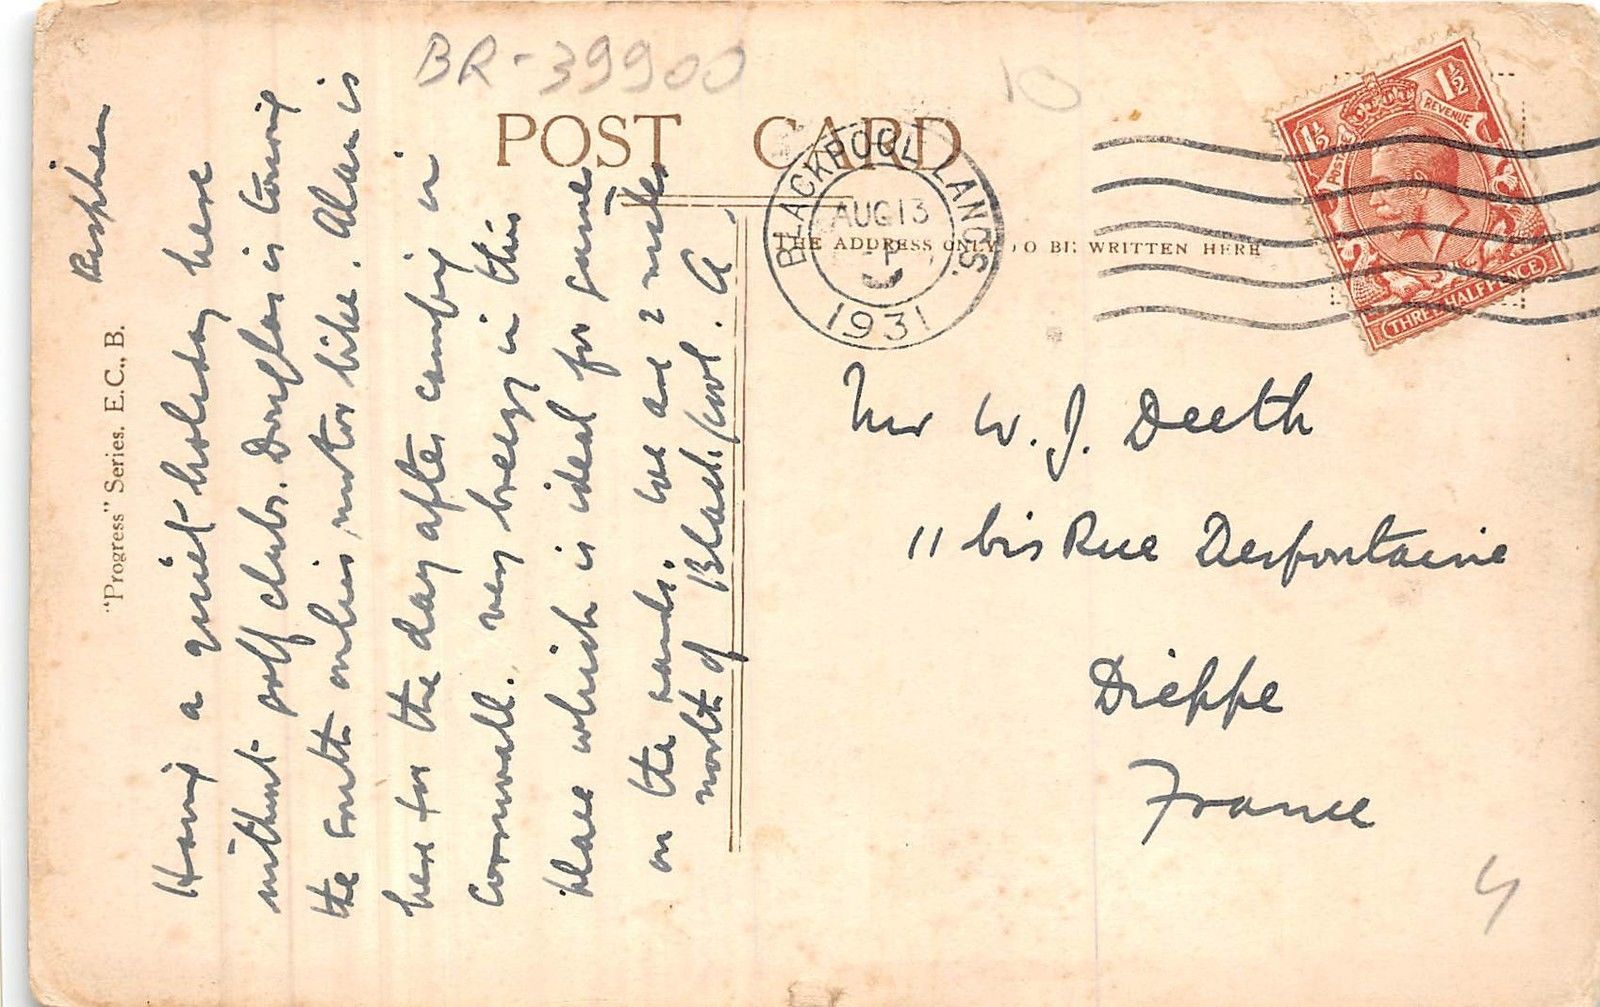 BR-39900
10
POST CARD
BLACKPOOL LANCS.
AUG 13
1931
THE ADDRESS ONLY TO BE WRITTEN HERE
1½ 1½
POSTAGE REVENUE
THREE HALFPENCE
Mr W. J. Deeth
11 bis Rue Desfontaine
Dieppe
France
4
"Progress" Series. E.C., B.
Bispham
Having a quiet holiday here
without golf clubs. Douglas is touring
the south on his motor bike. Alan is
here for the day after camping in
Cornwall. Very breezy in this
place which is ideal for games
on the sands. We are 2 miles
north of Blackpool. A